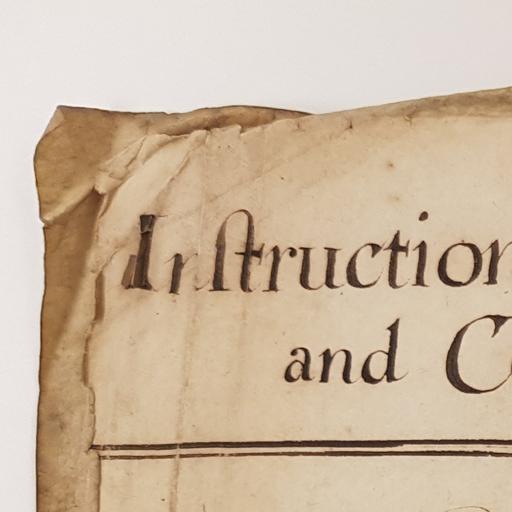 Inſtruction
and C